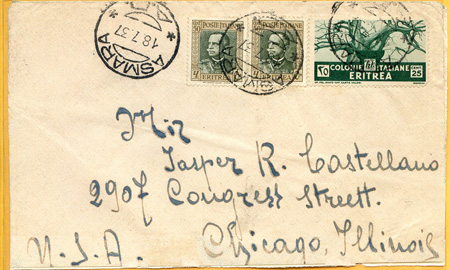 ASMARA
18.7.37
POSTE ITALIANE
ERITREA
POSTE ITALIANE
ERITREA
COLONIE ITALIANE
ERITREA
10
25
Mir
Jasper R. Castellano
2907 Congress Street.
Chicago, Illinois
U.S.A.